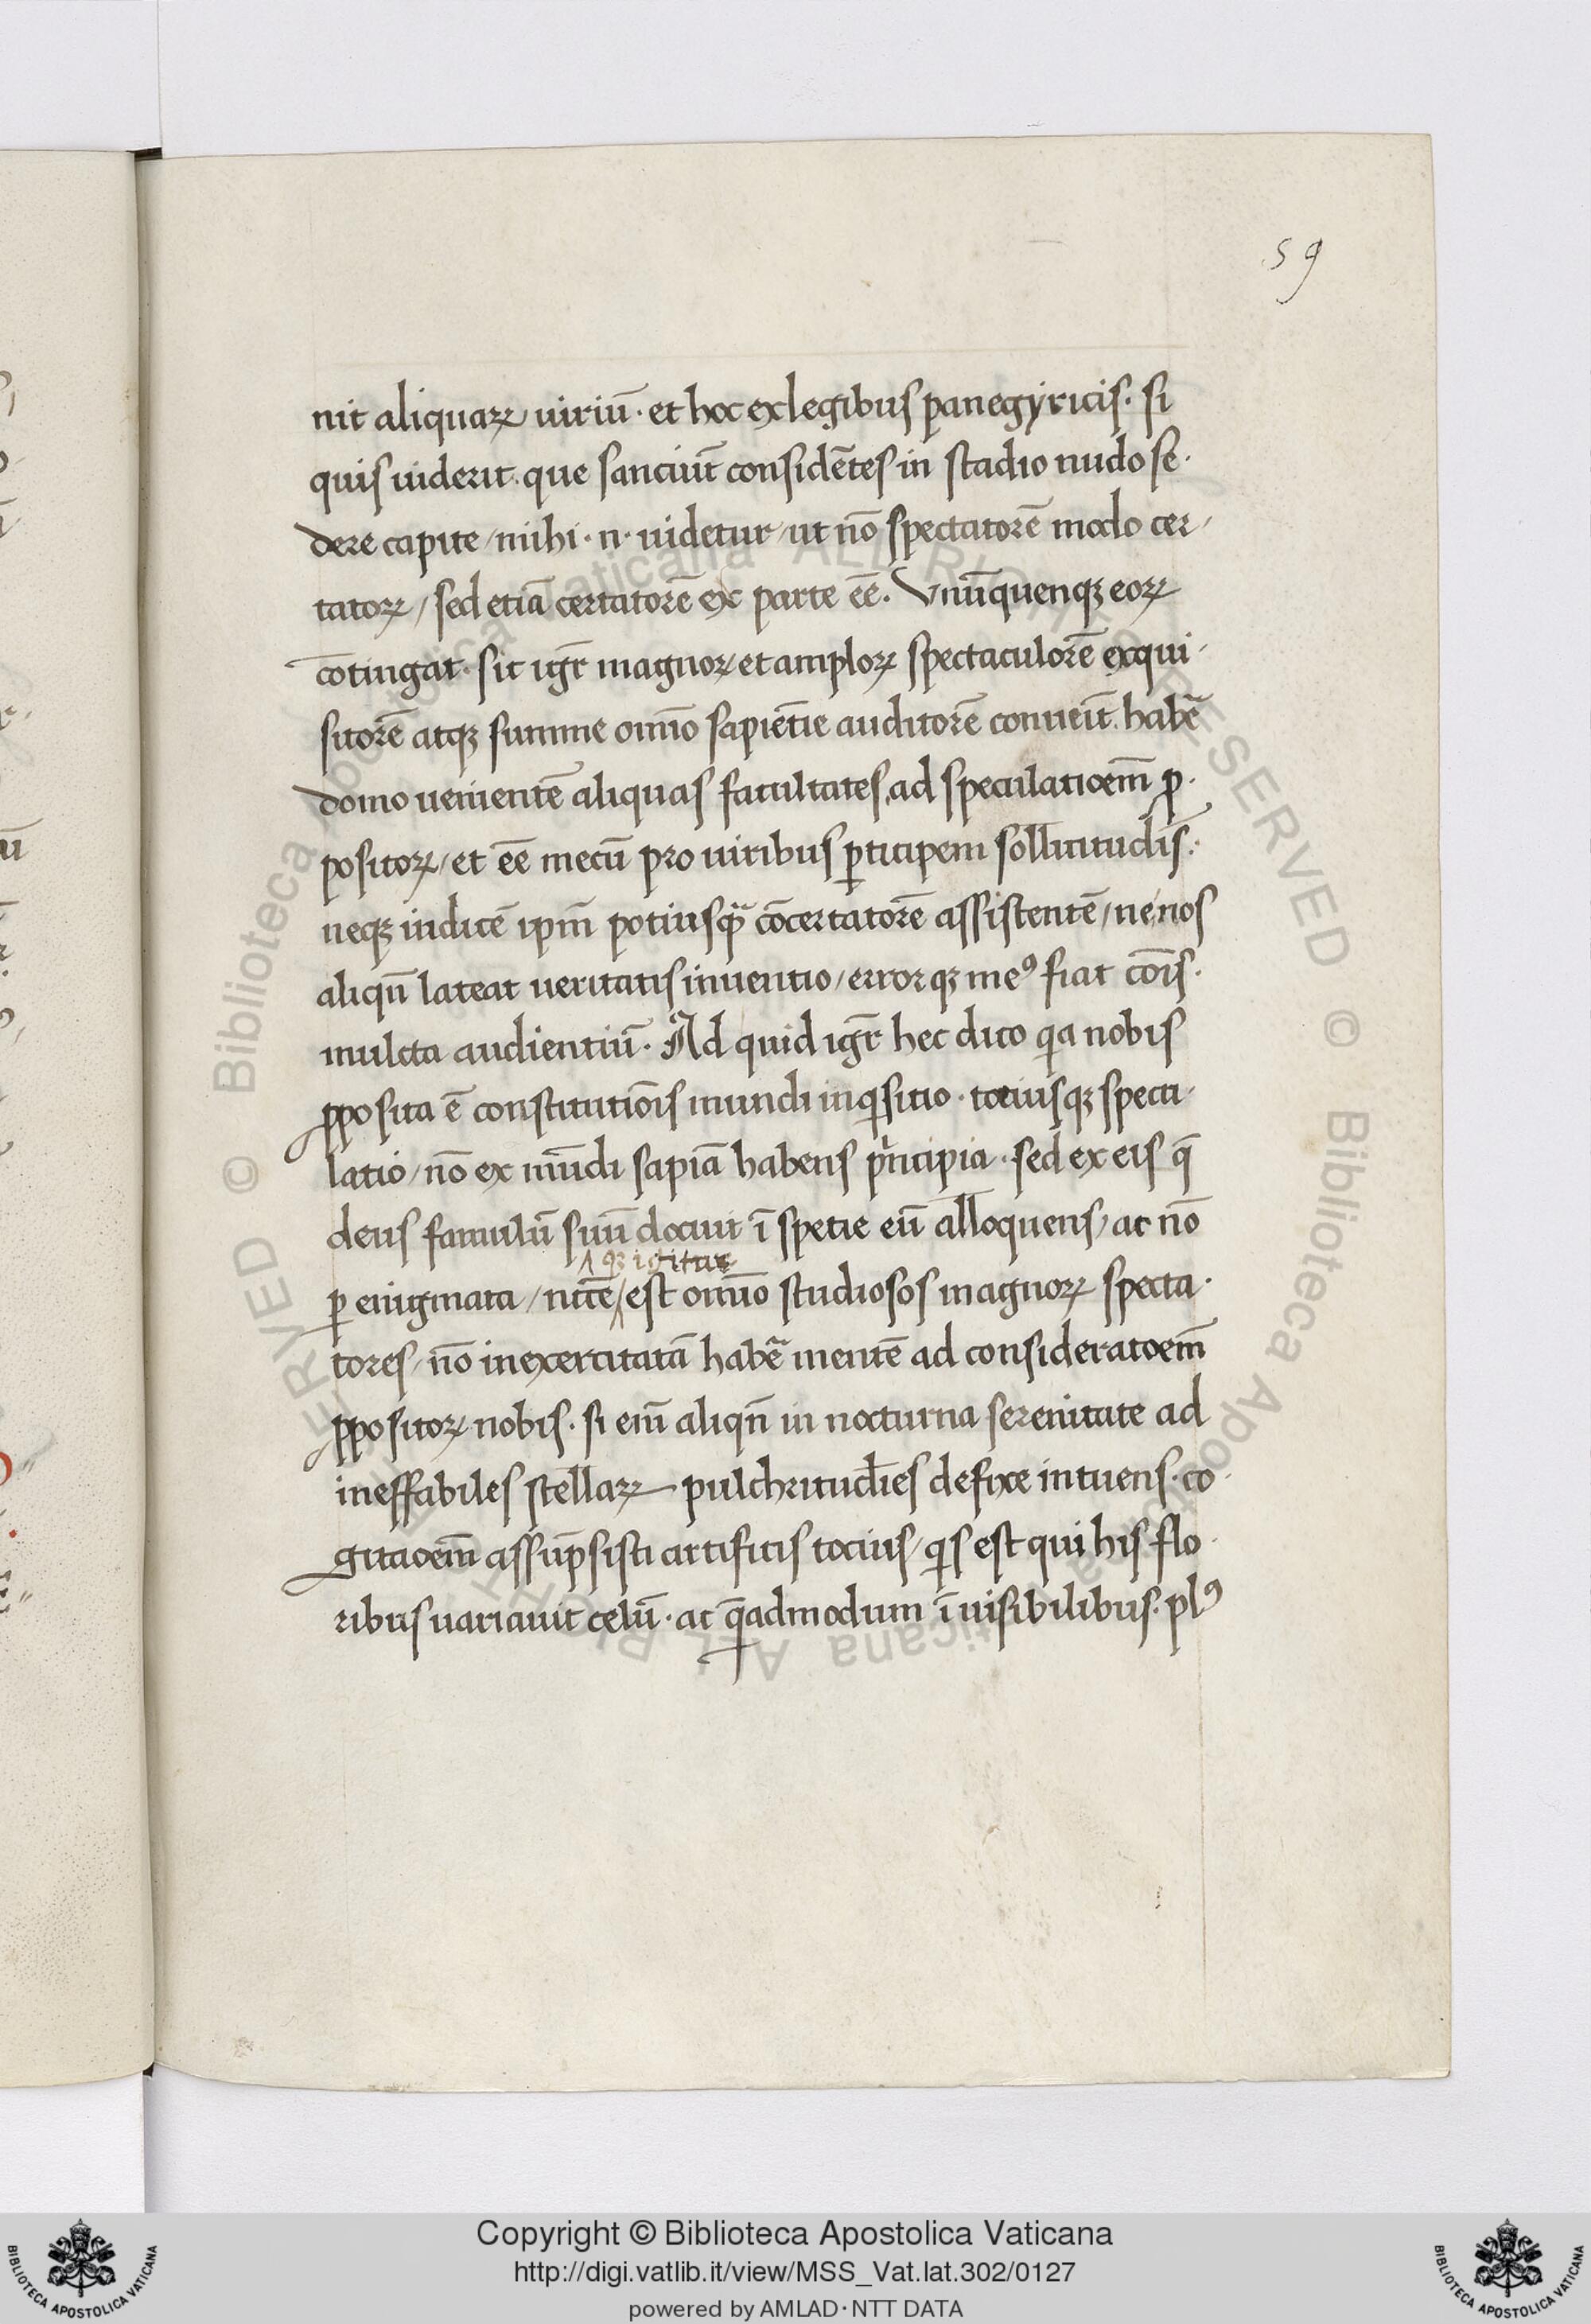 59
nit aliquaꝝ uiriū · et hoc ex legibus panegyricis · si
quis uiderit · que sanciūt considētes in stadio nudo se ·
dere capite / mihi · n · uidetur / ut nō spectatorē modo cer /
tatoꝝ / sed etiā certatorē ex parte eē . Vnūquenqꝫ eoꝝ
cōtingat · sit igr̄ magnoꝝ et amploꝝ spectaculorē exqui /
sitorē atqꝫ summe omīo sapiētie auditorē conueīt habē
domo uenientē aliquas facultates, ad speculatioem̄ ꝓ ·
positoꝝ / et eē mecū pro uiribus ꝑticipem sollicitudīs .
neqꝫ iudicē ipm̄ potiusqꝫ cōcertatorē assistentē / ne nos
aliqn̄ lateat ueritatis inuentio / errorqꝫ meꝰ fiat cōis ·
mulcta audientiū . Ad quid igr̄ hec dico qa nobis
ꝓposita ē constitutiōis mundi inqsitio · tociusqꝫ specu /
latio / nō ex mūdi sapiā habens pncipia · sed ex eis q̄
deus famulū suū docuit ī spetie eū alloquens / ac nō
ꝫ igitur
ꝑ enigmata / nccē est omīo studiosos magnoꝝ specta ·
tores / nō inexercitatā habē mentē ad consideratoem̄
ꝓpositoꝝ nobis · si eīm aliqn̄ in nocturna serenitate ad
ineffabiles stellaꝝ pulchritudīes defixe intuens · co ·
gitaoem̄ assūpsisti artificis tocius / qs est qui his flo ·
ribus uariauit celū · ac q̄admodum ī uisibilibus · plꝰ
Copyright © Biblioteca Apostolica Vaticana
http://digi.vatlib.it/view/MSS_Vat.lat.302/0127
powered by AMLAD·NTT DATA